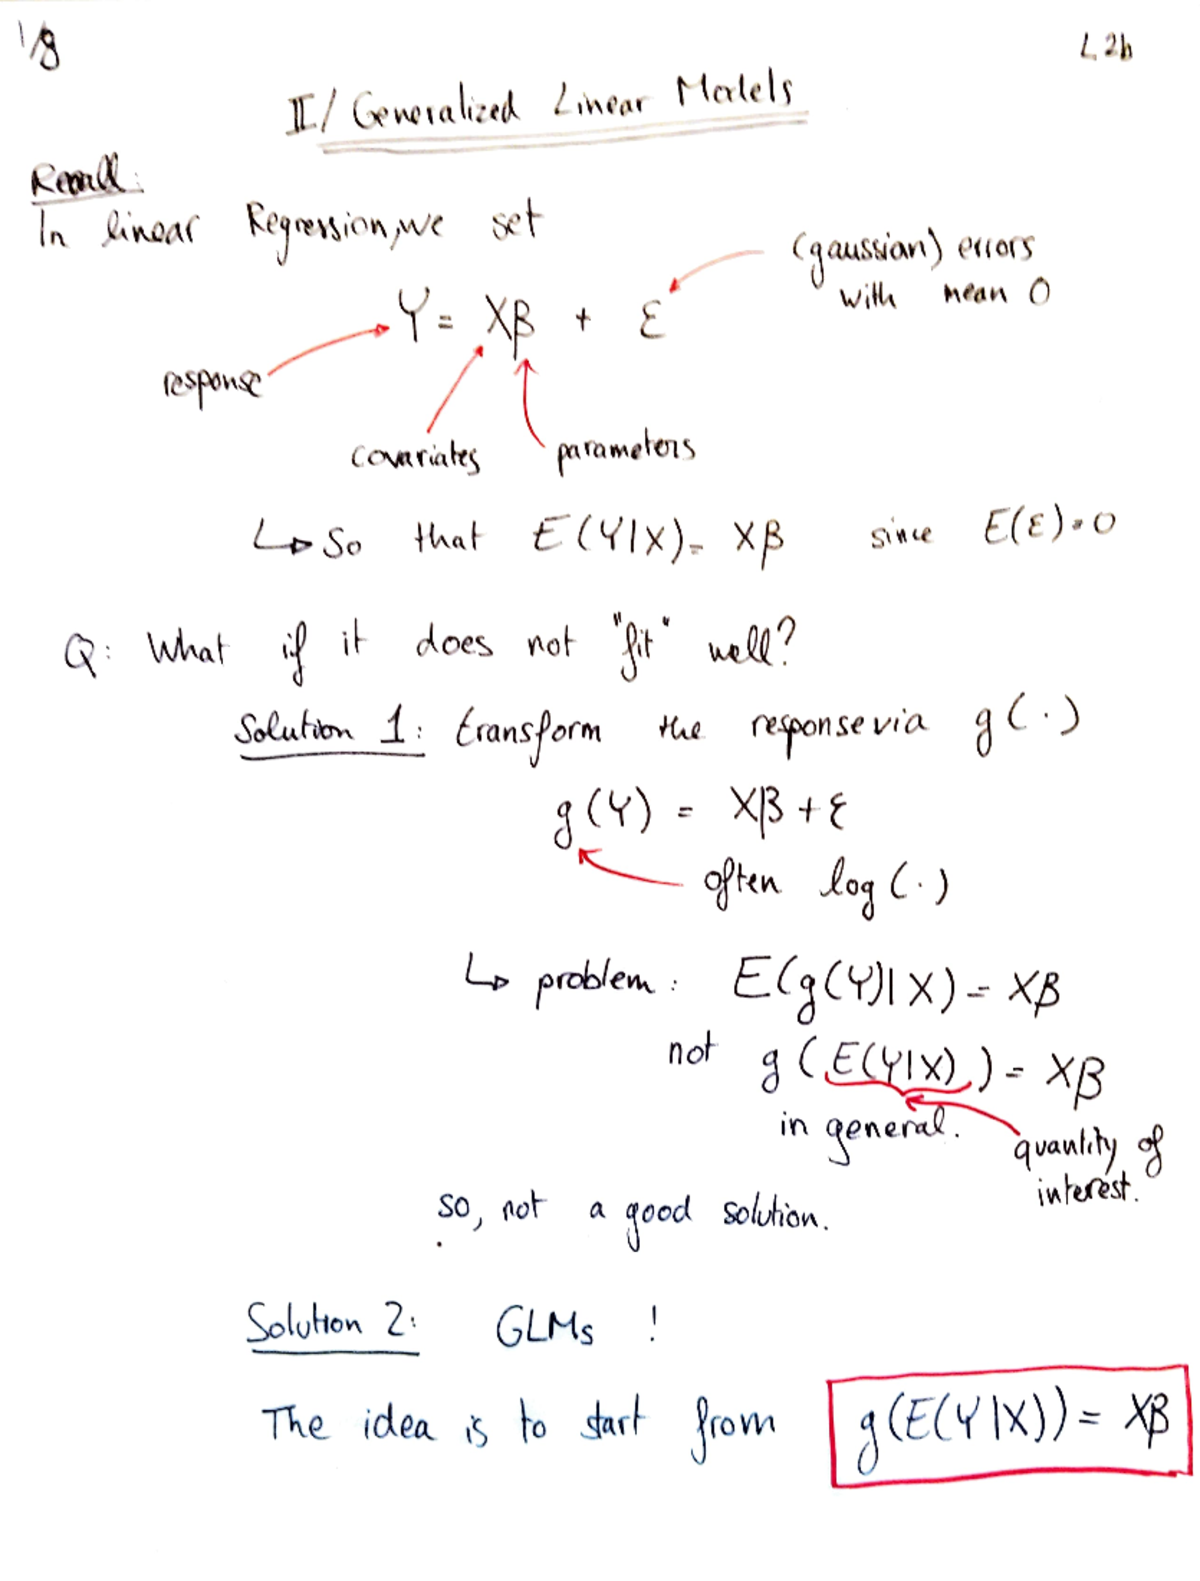 1/8
L2b
II/ Generalized Linear Models
Recall:
In linear Regression, we set
(gaussian) errors
with mean 0
Y = Xβ + ε
response
covariates
parameters
↳ So that E(Y|X) = Xβ since E(ε) = 0
Q: What if it does not "fit" well?
Solution 1: transform the response via g(·)
g(Y) = Xβ + ε
often log(·)
↳ problem: E(g(Y)|X) = Xβ
not g(E(Y|X)) = Xβ
in general.
quantity of
interest.
so, not a good solution.
Solution 2: GLMs !
The idea is to start from g(E(Y|X)) = Xβ